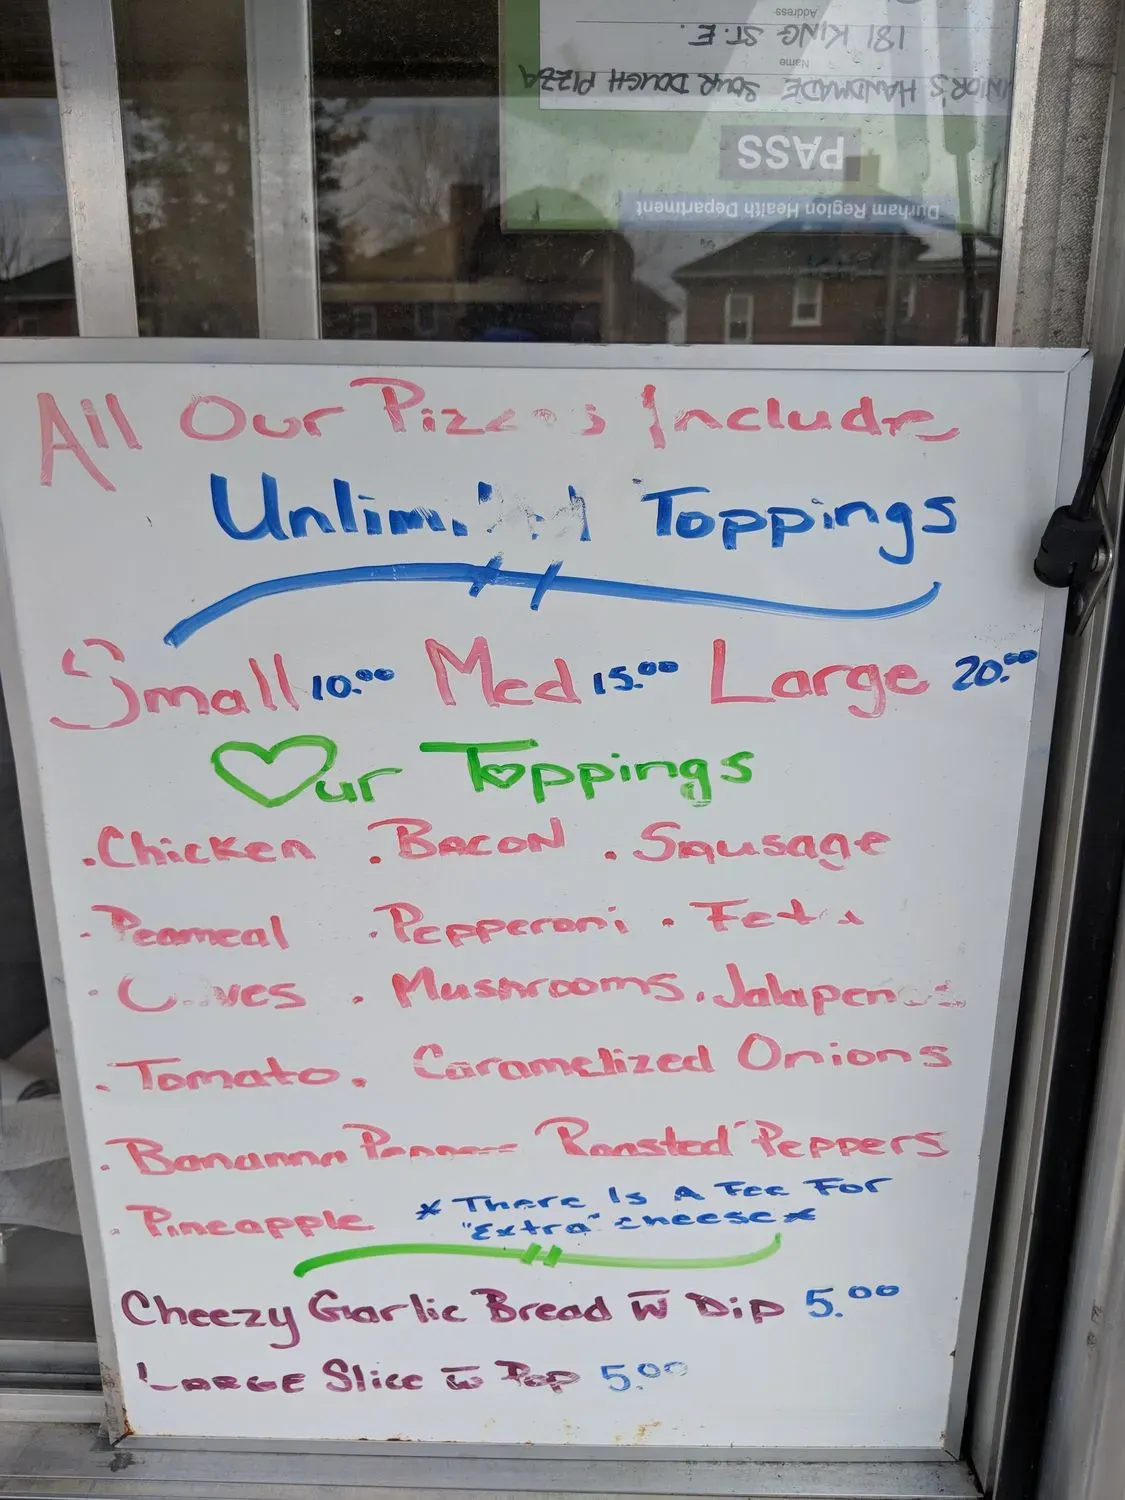 Address
181 KING ST. E.
Name
JUNIOR'S HANDMADE SOUR DOUGH PIZZA
PASS
Durham Region Health Department
All Our Pizzas Include
Unlimited Toppings
Small 10.00 Med 15.00 Large 20.00
Our Toppings
. Chicken . Bacon . Sausage
. Peameal . Pepperoni . Feta
. Olives . Mushrooms . Jalapenos
. Tomato . Caramelized Onions
. Bananna Peppers Roasted Peppers
. Pineapple * There Is A Fee For
"Extra" cheese *
Cheezy Garlic Bread w Dip 5.00
LARGE Slice w Pop 5.00